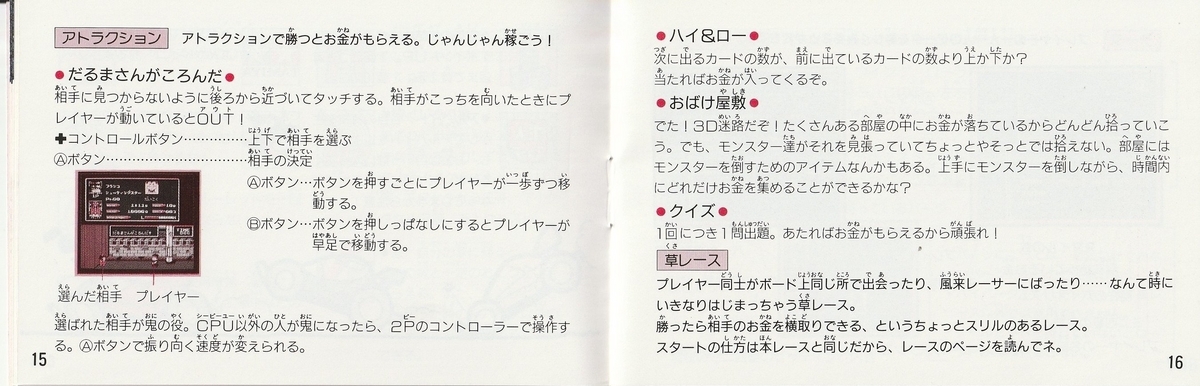 アトラクション アトラクションで勝つとお金がもらえる。じゃんじゃん稼ごう！
●だるまさんがころんだ●
相手に見つからないように後ろから近づいてタッチする。相手がこっちを向いたときにプ
レイヤーが動いているとOUT！
✚コントロールボタン……………上下で相手を選ぶ
Ⓐボタン……………………………相手の決定
Ⓐボタン…ボタンを押すごとにプレイヤーが一歩ずつ移
動する。
Ⓑボタン…ボタンを押しっぱなしにするとプレイヤーが
早足で移動する。
だるまさんがころんだ
選んだ相手 プレイヤー
選ばれた相手が鬼の役。CPU以外の人が鬼になったら、2Pのコントローラーで操作す
る。Ⓐボタンで振り向く速度が変えられる。
15
●ハイ＆ロー●
次に出るカードの数が、前に出ているカードの数より上か下か？
当たればお金が入ってくるぞ。
●おばけ屋敷●
でた！3D迷路だぞ！たくさんある部屋の中にお金が落ちているからどんどん拾っていこ
う。でも、モンスター達がそれを見張っていてちょっとやそっとでは拾えない。部屋には
モンスターを倒すためのアイテムなんかもある。上手にモンスターを倒しながら、時間内
にどれだけお金を集めることができるかな？
●クイズ●
1回につき1問出題。あたればお金がもらえるから頑張れ！
草レース
プレイヤー同士がボード上同じ所で出会ったり、風来レーサーにばったり……なんて時に
いきなりはじまっちゃう草レース。
勝ったら相手のお金を横取りできる、というちょっとスリルのあるレース。
スタートの仕方は本レースと同じだから、レースのページを読んでネ。
16